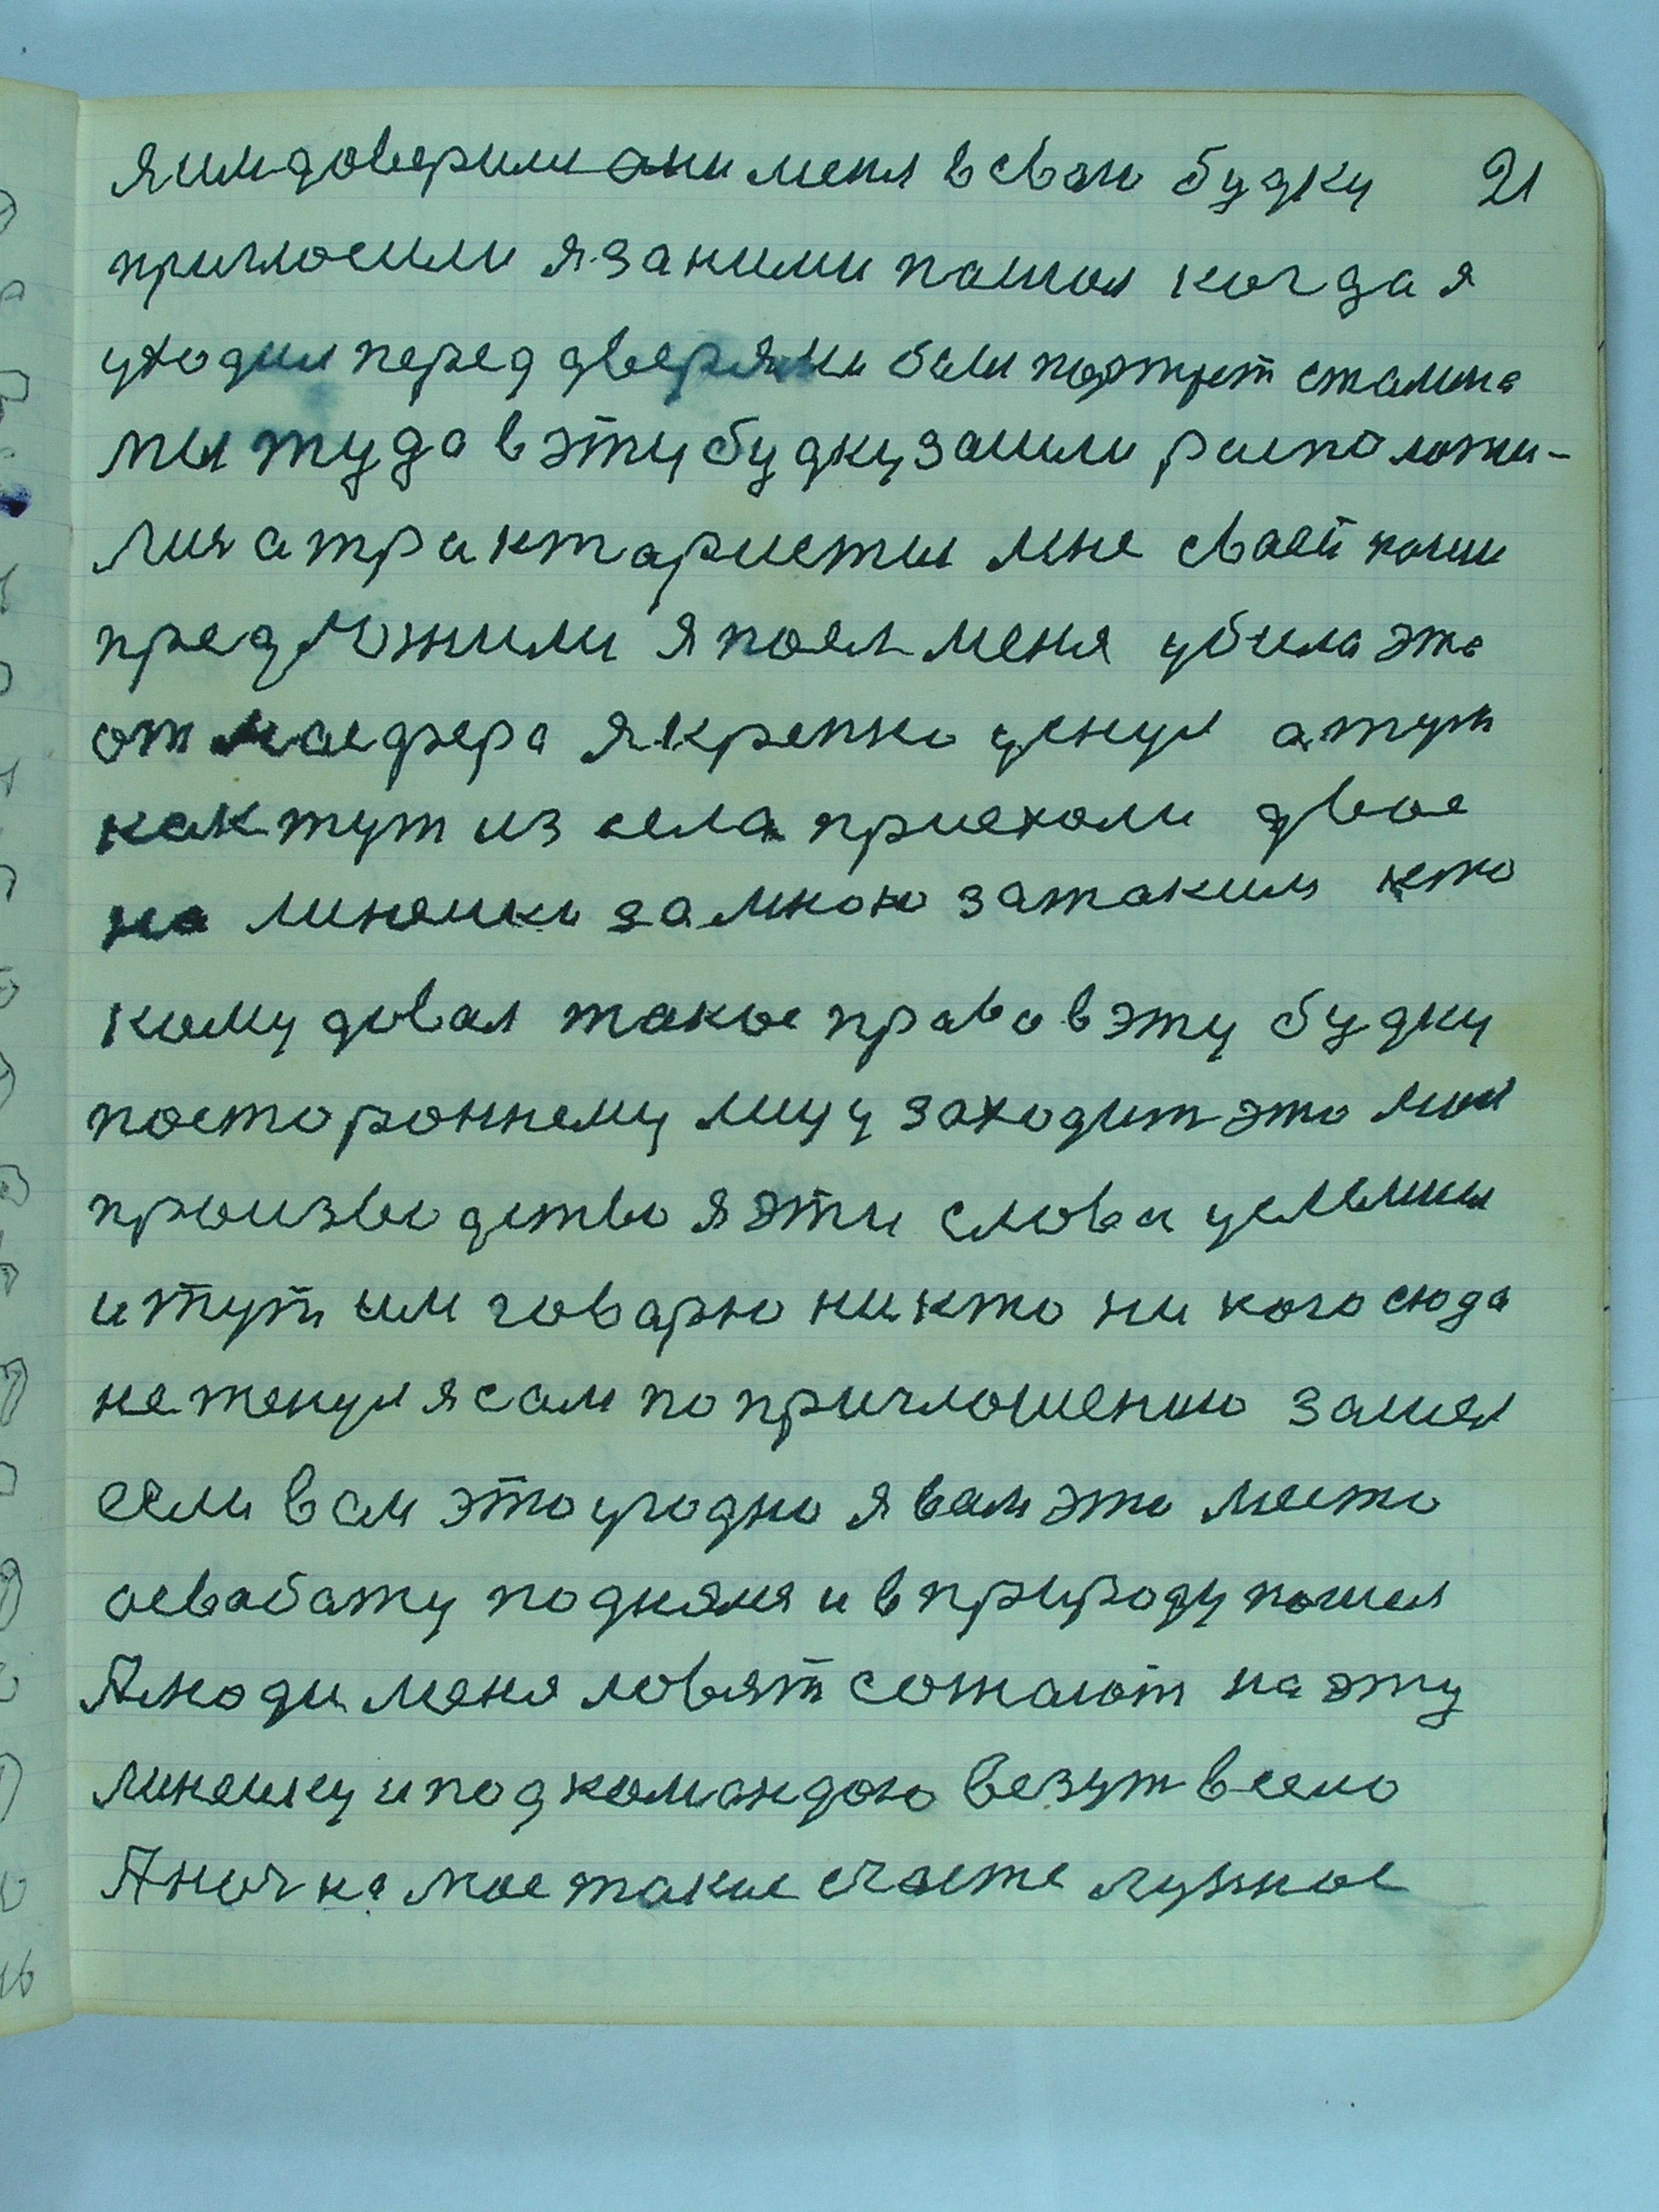 я им доверили они меня в свою будку 21
пригласили я за ними пашол когда я
уходил перед дверями был портрет сталина
мы туда в эту будку зашли располажи-
лися а трактаристы мне сваей каши
предложили я поел меня убила эта
атмасфера я крепко уснул а тут
как тут из села приехали двое
на линеики за мною за таким кто
кому довал такое право в эту будку
постороннему лицу заходит это мол
произвоодство я эти слова услышил
и тут им говарю никто ни кого сюда
не тенул я сам по приглошению зашел
если вам это угодно я вам это место
асвабажу поднялся и в природу пошел
А люди меня ловят сожают на эту
линеику и под командою везут в село
А ноч на мое такие счастье лунное